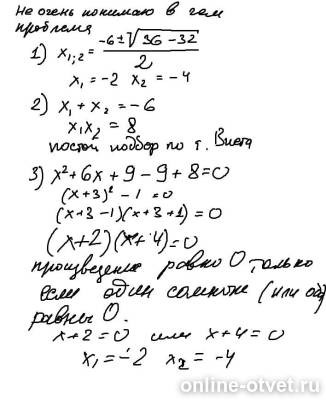 не очень понимаю в чем
проблема
1) x₁;₂ = (-6±√(36-32))/2
x₁ = -2 x₂ = -4
2) x₁ + x₂ = -6
x₁x₂ = 8
постой подбор по т. Виета
3) x²+6x+9-9+8=0
(x+3)² - 1 = 0
(x+3-1)(x+3+1) = 0
(x+2)(x+4)=0
произведение равно 0, только
если один (или оба)
равны 0.
x+2=0 или x+4=0
x₁=-2 x₂=-4
online-otvet.ru